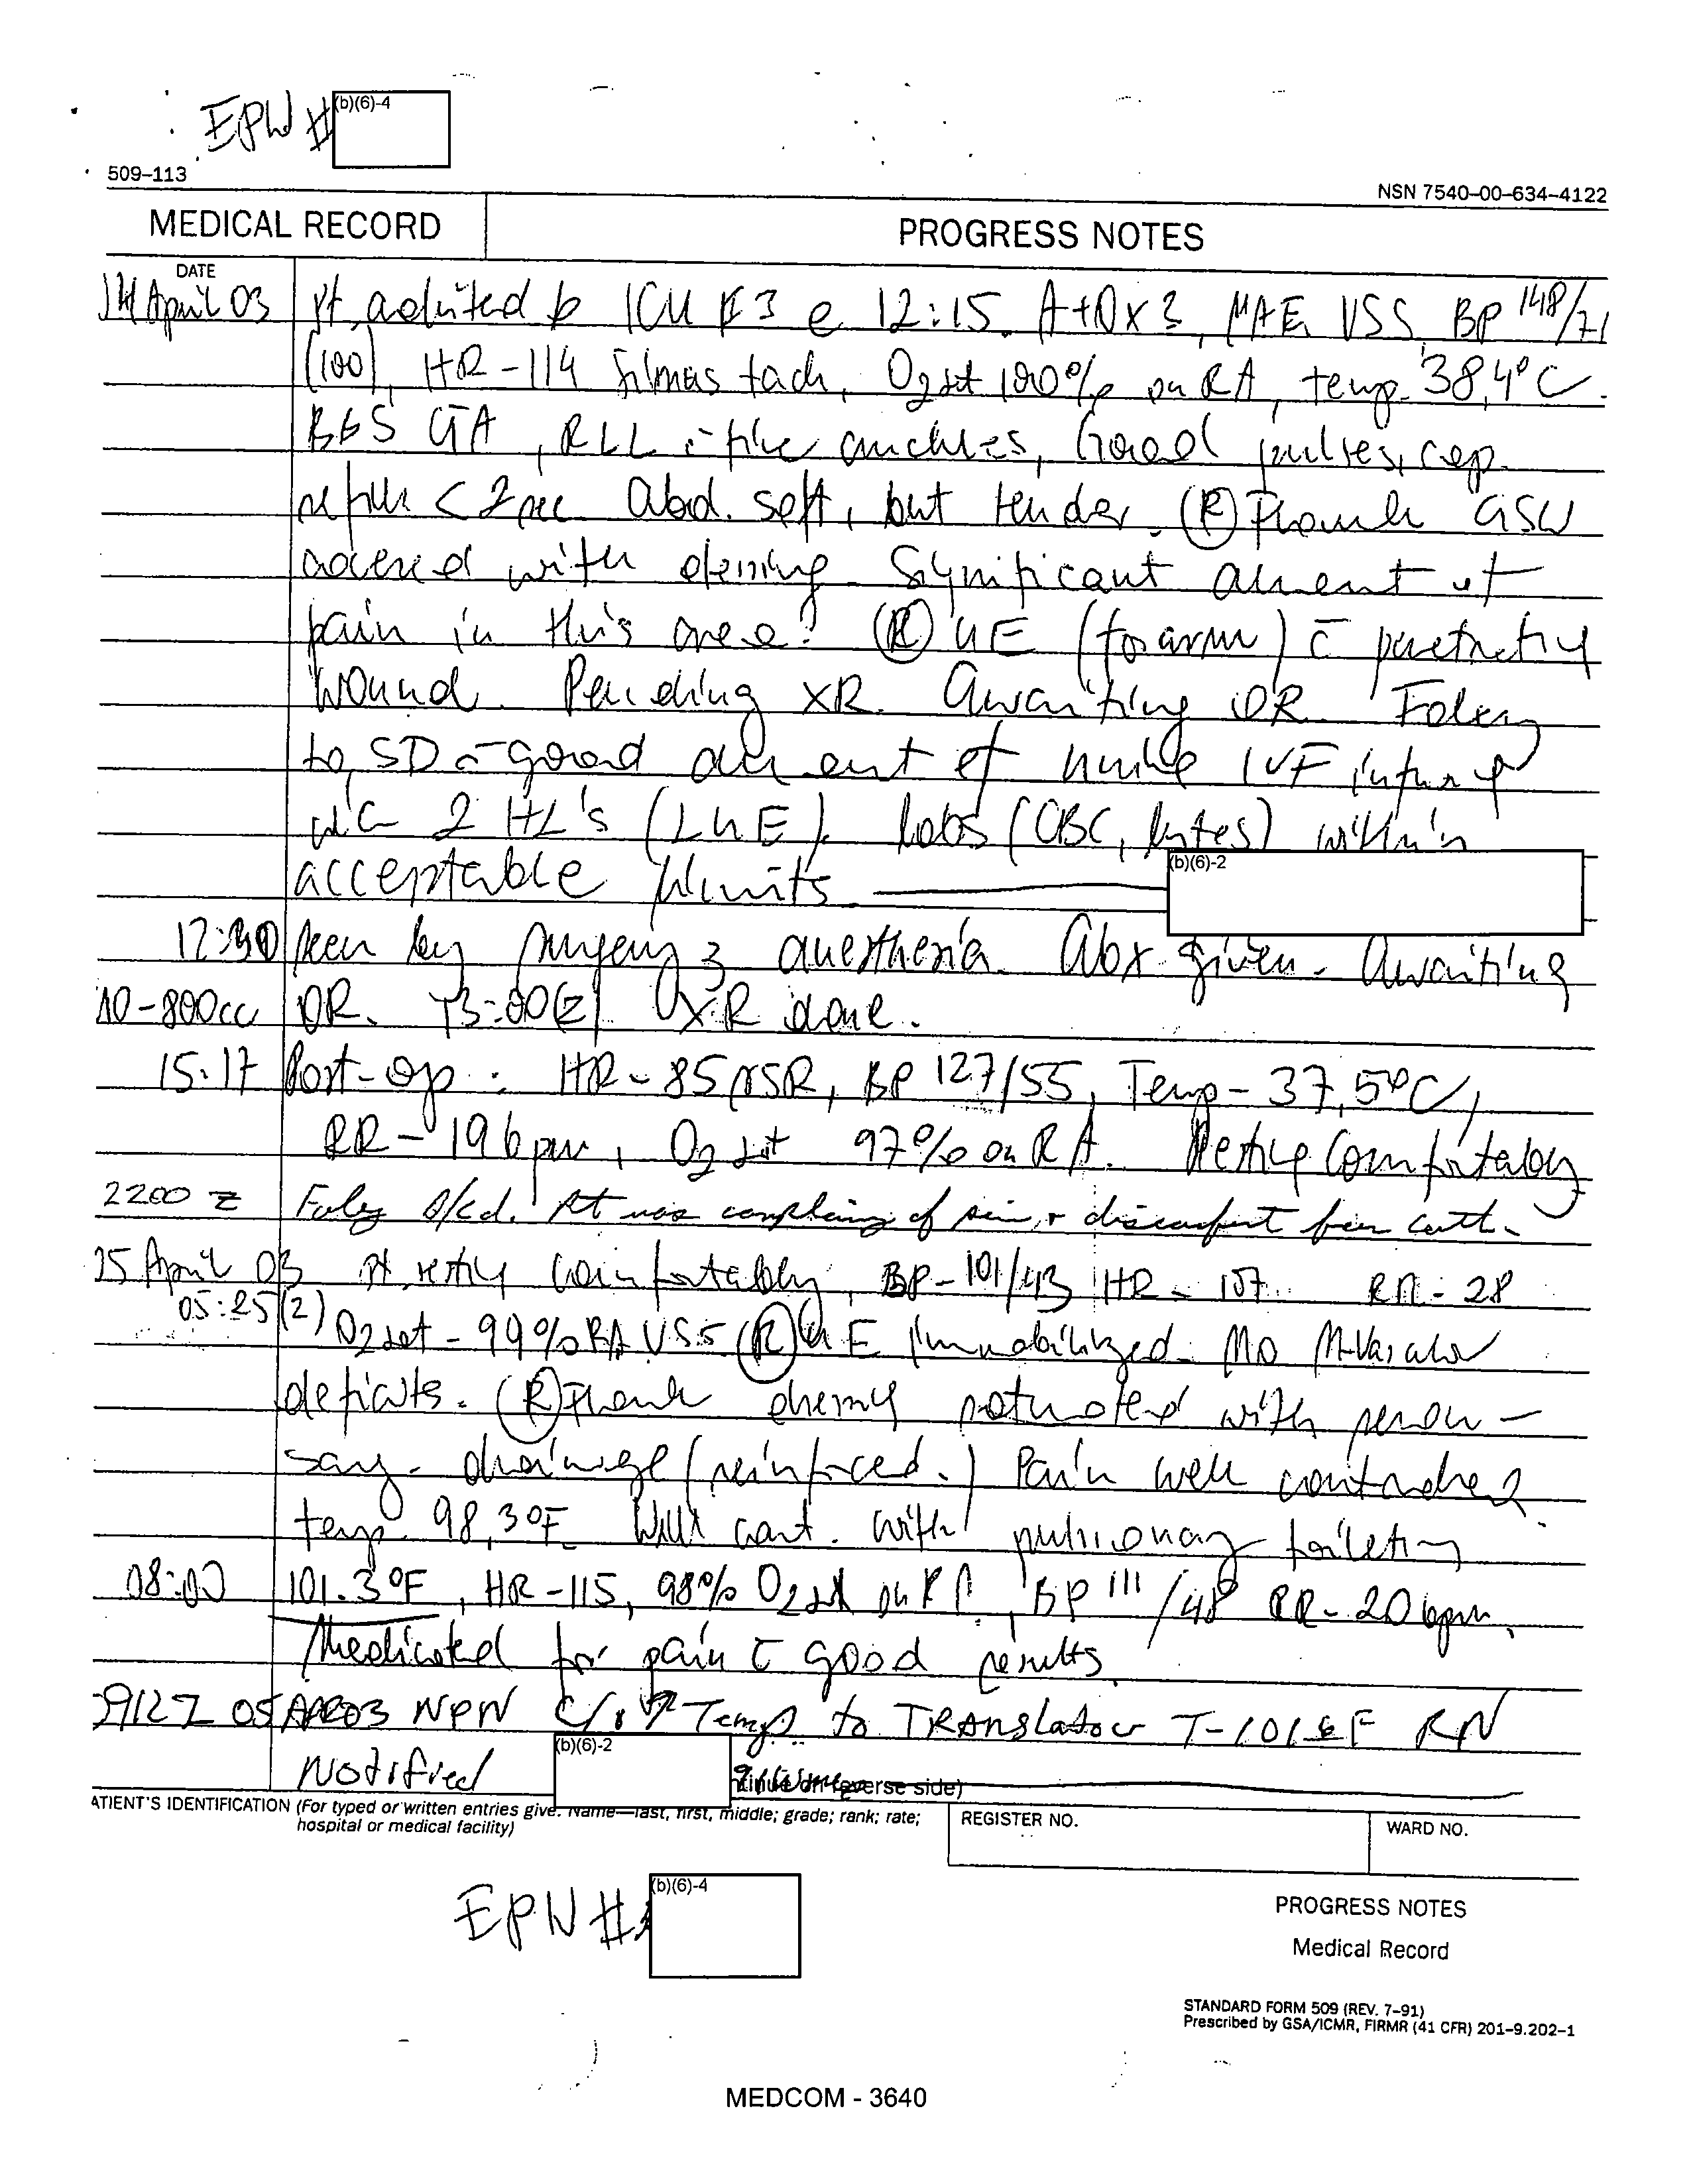 EPW #
(b)(6)-4
509–113
NSN 7540–00–634–4122
MEDICAL RECORD
PROGRESS NOTES
DATE
April 03 Pt. to ICU #3 @ 12:15. A+Ox3, MAE, VSS, BP 148/71
(100), HR-114 tach, O2 sat 100% on RA, temp. 38,4°C.
CTA, RLL fine , Good pulses, cap.
refill < 2 sec. Abd. soft, but tender. (R) Flank GSW
with . Significant of
pain in this area. (R) UE (forarm) c̄
wound. Pending XR. Awaiting OR. Foley
to SD good of IVF
2 HL's (LUE). labs (CBC, lytes) within
acceptable limits.
(b)(6)-2
seen by surgery anesthesia. Abx given. Awaiting
-800cc OR. XR done.
15:17 Post-op: HR-85 NSR, BP 127/55, Temp-37,5°C,
RR-19 bpm, O2 sat 97% on RA. Resting Comfortably
2200 Z Foley d/cd. Pt was complaining of pain + discomfort from cath.
April 03 Pt. resting comfortably, BP- HR- 107 RR- 28
05:25 O2 sat-99% RA VSS (R) UE Immobilized. No
deficits. (R) Flank with
drainage (reinforced.) Pain well controlled
temp 98,3°F. Will cont. with pulmonary
08:00 101.3°F, HR-115, 98% O2 sat on RA, BP 111/48 RR-20 bpm.
Medicated for pain c̄ good results.
NPN Temp to TRANSlator RN
Notified
(b)(6)-2
reverse side)
ATIENT'S IDENTIFICATION (For typed or written entries give: Name—last, first, middle; grade; rank; rate;
hospital or medical facility)
REGISTER NO.
WARD NO.
EPW #
(b)(6)-4
PROGRESS NOTES
Medical Record
STANDARD FORM 509 (REV. 7–91)
Prescribed by GSA/ICMR, FIRMR (41 CFR) 201–9.202–1
MEDCOM - 3640